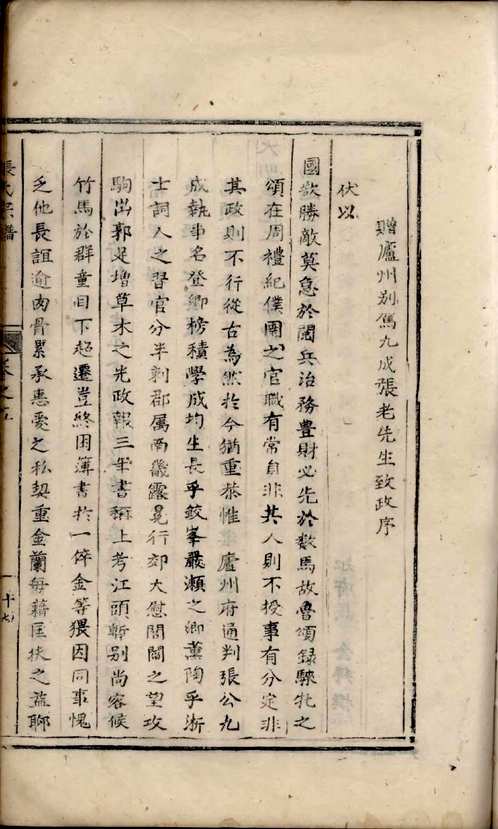 贈廬州别駕九成張老先生致政序
伏以
國欲勝敵莫急於閱兵治務豊財必先於数馬故魯頌録駉牝之
頌在周禮紀僕圉之官職有常自非其人則不授事有分定非
其政則不行從古為然於今猶重恭惟廬州府通判張公九
成執事名登卿榜積學成均生長乎鈘峯嚴瀬之卿薰陶乎浙
士詞人之習官分半刺郡属南畿露冕行郊大慰閭閻之望攻
駒出郭足増草木之光政報三年書稱上考江頭暫别尚容候
竹馬於群童目下超遷豈終困簿書於一倅金等猥因同事愧
乏他長誼逾肉骨累承惠愛之私契重金蘭每藉匡扶之益聊
張氏宗譜
卷之五
十七